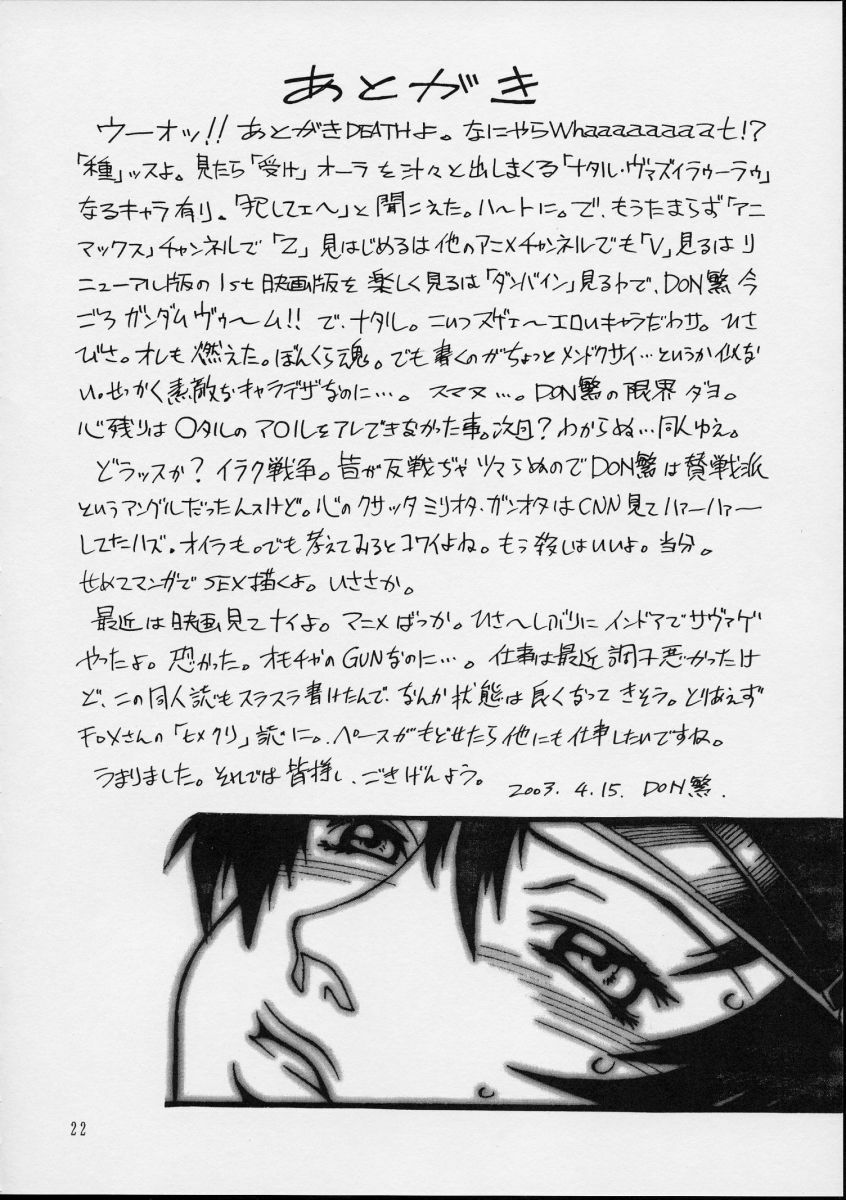 あとがき
ウーオッ!! あとがきDEATHよ。なにやらWhaaaaaaaat!?
「種」ッスよ。見たら「受け」オーラを汁々と出しまくる「ナタル・ヴァズイラゥーラゥ」
なるキャラ有り。「犯してェ〜」と聞こえた。ハートに。で、もうたまらず「アニ
マックス」チャンネルで「Z」見はじめるは他のアニメチャンネルでも「V」見るはリ
ニューアル版の1st映画版を楽しく見るは「ダンバイン」見るわで、DON繁今
ごろガンダムヴゥ〜ム!! で、ナタル。こいつスゲェ〜エロいキャラだわサ。ひさ
びさ。オレも燃えた。ぼんくら魂。でも書くのがちょっとメンドクサイ…というか似な
い。せっかく素敵なキャラデザなのに…。スマヌ…。DON繁の限界ダヨ。
心残りは〇タルのア〇ルをアレできなかった事。次回?わからぬ…同人ゆえ。
どうッスか?イラク戦争。皆が反戦ぢゃツマらぬのでDON繁は賛戦派
というアングルだったんスけど。心のクサッタミリオタ・ガンオタはCNN見てハァーハァー
してたハズ。オイラも。でも考えてみるとコワイよね。もう殺しはいいよ。当分。
せめてマンガでSEX描くよ。いささか。
最近は映画見てナイよ。マニメばっか。ひさ〜しぶりにインドアでサヴァゲ
やったよ。恐かった。オモチャのGUNなのに…。仕事は最近調子悪かったけ
ど、この同人誌もスラスラ書けたんで、なんか状態は良くなってきそう。とりあえず
FOXさんの「ヒメクリ」誌に。ペースがもどせたら他にも仕事したいですね。
うまりました。それでは皆様し、ごきげんよう。 2003. 4.15. DON繁.
22